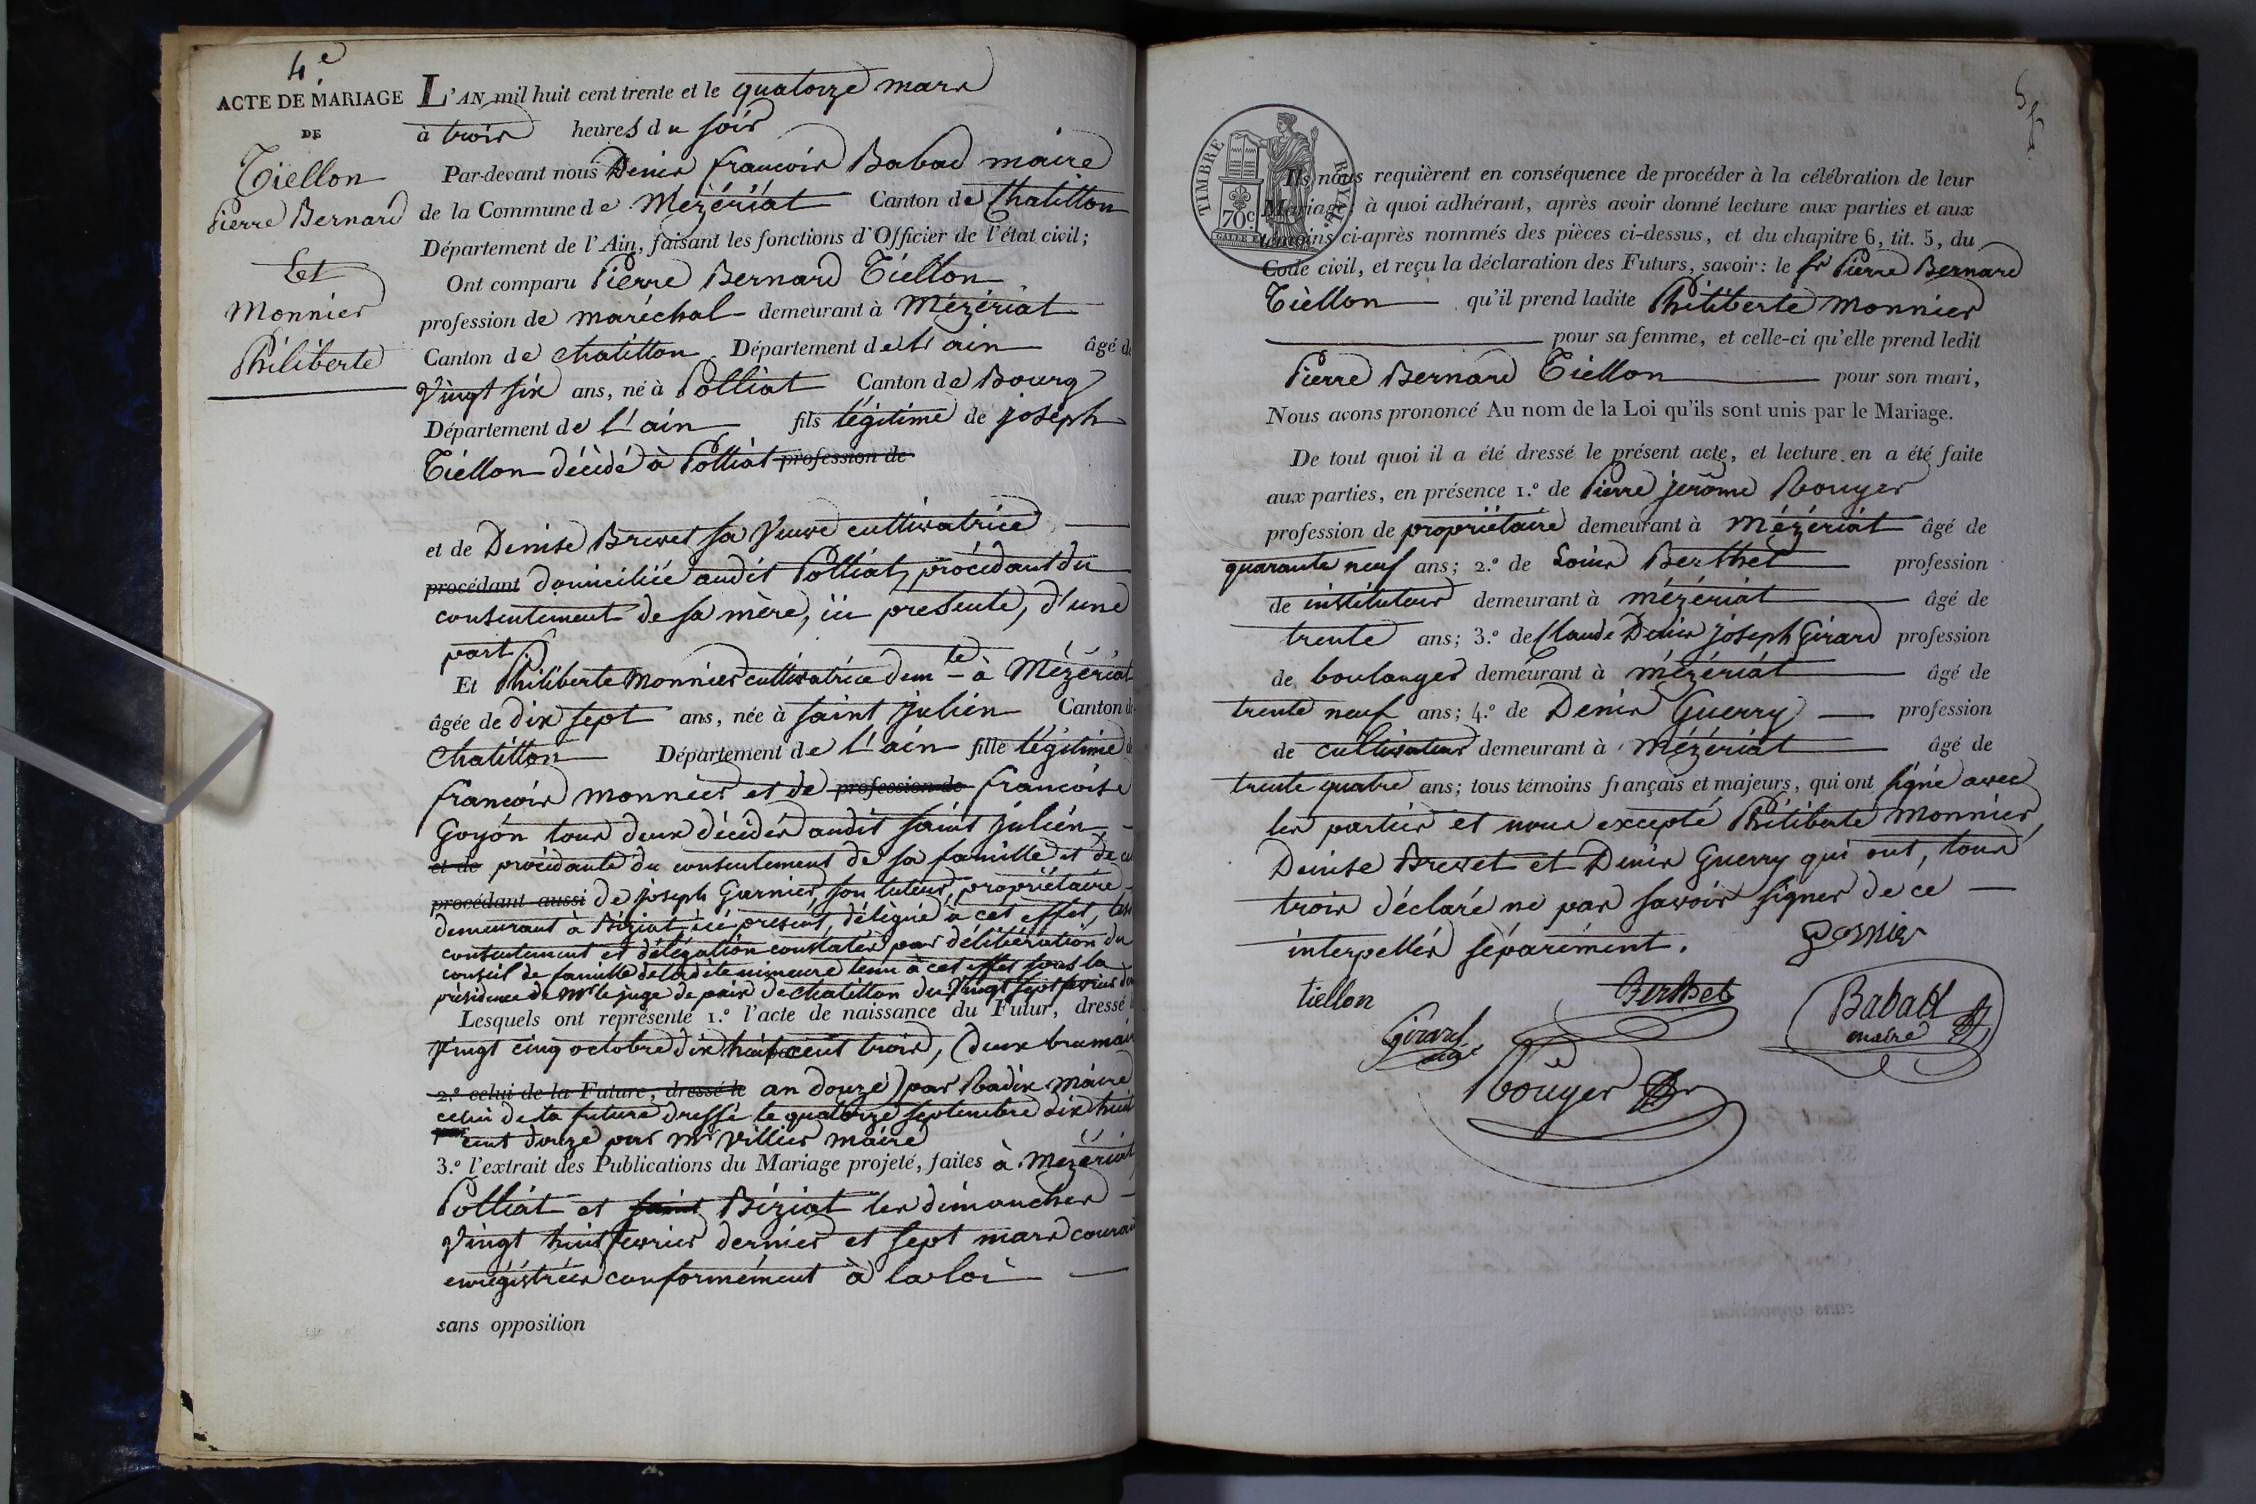 4e
ACTE DE MARIAGE
DE
Tiéllon
Pierre Bernard
Et
Monnier
Philiberte
L'AN mil huit cent trente et le quatorze mars
à trois heures du soir
Par-devant nous Denis françois Babad maire
de la Commune de Mézériat Canton de Chatillon
Département de l'Ain, faisant les fonctions d'Officier de l'état civil;
Ont comparu Pierre Bernard Tiéllon
profession de maréchal demeurant à Mézériat
Canton de chatillon Département de l'ain âgé de
vingt six ans, né à Polliat Canton de Bourg
Département de l'ain fils légitime de joseph
Tiéllon décédé à Polliat profession de
et de Denise Brevet sa Veuve cultivatrice
procédant domiciliée audit Polliat, procédant du
consentement de sa mère, ici presente, d'une
part
Et Philiberte Monnier cultivatrice demte à Mézériat
âgée de dix sept ans, née à saint julien Canton de
chatillon Département de l'ain fille légitime de
françois monnier et de profession de francoise
Goyon tous deux décédés audit saint julien,
et de procédante du consentement de sa famille et de ce
procédant aussi de joseph Garnier, son tuteur, propriétaire
demeurant à Biziat ici présent, délégué à cet effet, les
consentement et délégation constatés par délibération du
conseil de famille de ladite mineure tenu à cet effet sous la
présidence de Mr le juge de paix de chatillon du vingt sept fevrier
Lesquels ont représenté 1.º l'acte de naissance du Futur, dressé
vingt cinq octobre dix huit cent trois, (deux brumaire
2.º celui de la Future, dressé le an douze) par Radix maire
celui de la future dressé le quatorze septembre dix huit
cent douze par Mr Villier maire
3.º l'extrait des Publications du Mariage projeté, faites à Mézériat
Polliat et saint Biziat les dimanches
vingt huit fevrier dernier et sept mars courant
enrégistrées conformément à la loi
sans opposition
TIMBRE ROYAL
70c
Ils nous requièrent en conséquence de procéder à la célébration de leur
Mariage; à quoi adhérant, après avoir donné lecture aux parties et aux
témoins ci-après nommés des pièces ci-dessus, et du chapitre 6, tit. 5, du
Code civil, et reçu la déclaration des Futurs, savoir: le sr Pierre Bernard
Tiéllon qu'il prend ladite Philiberte Monnier
pour sa femme, et celle-ci qu'elle prend ledit
Pierre Bernard Tiéllon pour son mari,
Nous avons prononcé Au nom de la Loi qu'ils sont unis par le Mariage.
De tout quoi il a été dressé le présent acte, et lecture en a été faite
aux parties, en présence 1.º de Pierre jerôme Rouyer
profession de propriétaire demeurant à Mézériat âgé de
quarante neuf ans; 2.º de Louis Berthet profession
de instituteur demeurant à mézériat âgé de
trente ans; 3.º de Claude Denis joseph Girard profession
de boulanger demeurant à mézériat âgé de
trente neuf ans; 4.º de Denis Guerry profession
de cultivateur demeurant à Mézériat âgé de
trente quatre ans; tous témoins français et majeurs, qui ont signé avec
les parties et nous excepté Philiberte Monnier,
Denise Brevet et Denis Guerry qui ont, tous
trois déclaré ne pas savoir signer de ce
interpellés séparément.
garnier
tiellon
Berthet
Babad
maire
Girard
Roüyer